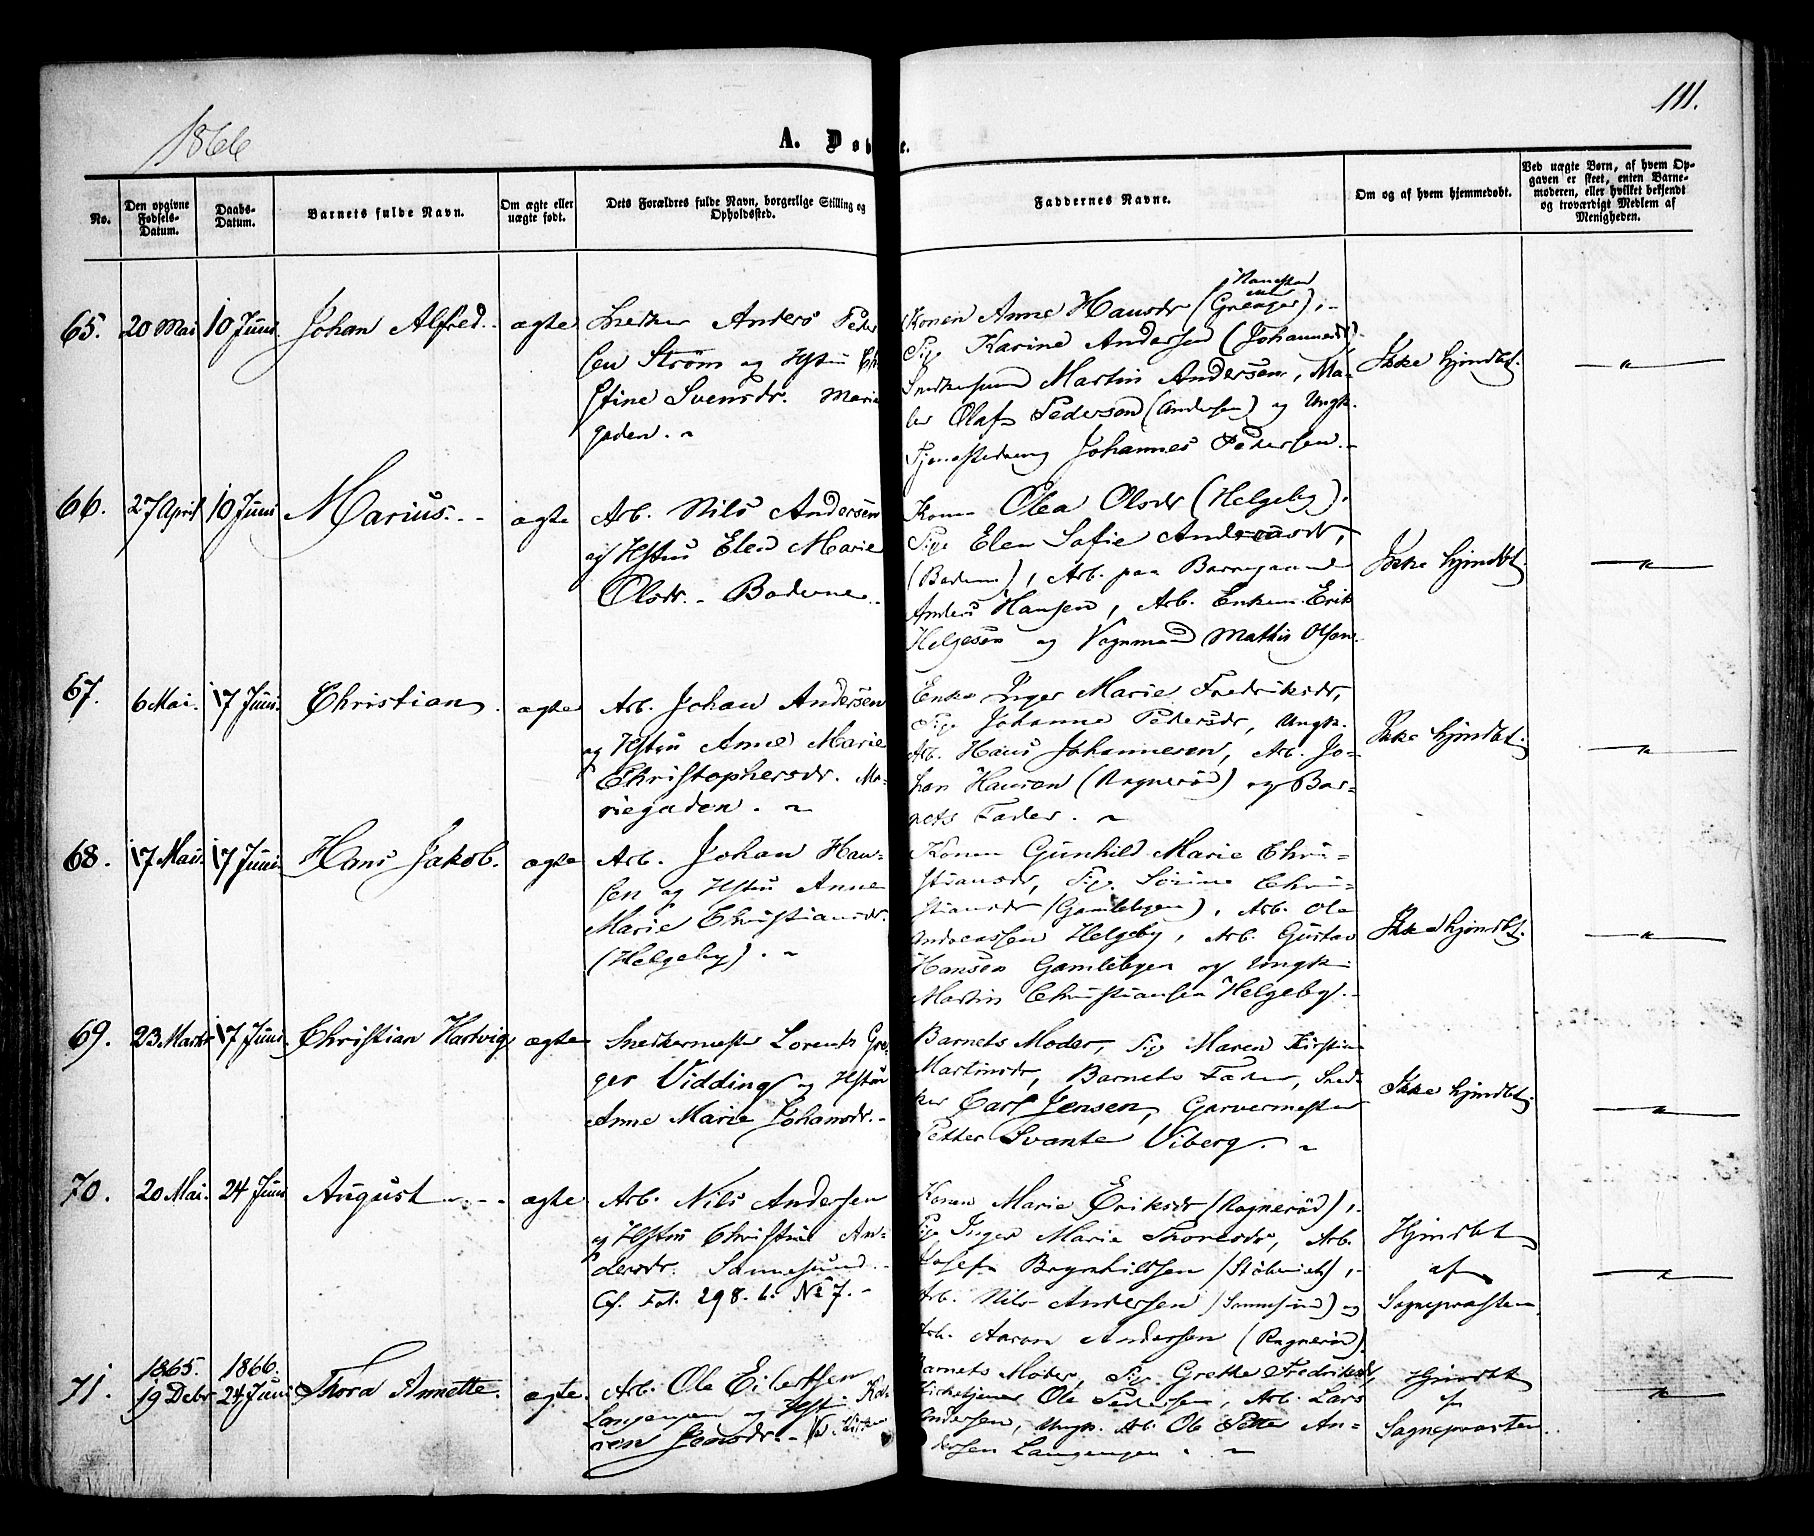 111.
1866
A. Døbte.
No.
Den opgivne Fødsels-Datum.
Daabs-Datum.
Barnets fulde Navn.
Om ægte eller uægte født.
Dets Forældres fulde Navn, borgerlige Stilling og Opholdssted.
Faddernes Navne.
Om og af hvem hjemmedøbt.
Ved uægte Børn, af hvem Opgaven er skeet, enten Barnemoderen, eller hvilket bekjendt og troværdigt Medlem af Menigheden.
65. 20 Mai 10 Juni Johan Alfred. ægte
Snedker Anders Peder
sen Strøm og Hstru
stine Svensdr. Marie
gaden. ~
Konen Anne Hansdr (Grenager),
Pige Karine Andersen (Johannesdr),
Martin Andersen, Ma-
ler Olaf Pedersen (Andersen) og Ungk.
Johannes Pedersen.
Ikke hjmdbt. "
66. 27 April 10 Juni Marius. ægte
Arb. Nils Andersen
og Hstru Elen Marie
Olsdr. Boderne.
Konen Olea Olsdr (Helgeby),
Pige Elen Sofie Andreasdr,
(Boderne), Arb. paa
Anders Hansen, Arb. Enkem. Erik
Helgesen og Vognmand Mathis Olsen
Ikke hjmdbt. "
67. 6 Mai. 17 Juni. Christian. ægte
Arb. Johan Andersen
og Hstru Anne Marie
Christophersdr. Ma-
riegaden. ~
Enke Inger Marie Fredriksdr,
Pige Johanne Pedersdr, Ungk.
Arb. Hans Johannesen, Arb. Jo-
han Hansen (Ragnerød) og Bar-
nets Fader. ~
Ikke hjmdbt. "
68. 17 Mai. 17 Juni. Hans Jakob. ægte
Arb. Johan Han-
sen og Hstru Anne
Marie Christiansdr.
(Helgeby). ~
Konen Gunhild Marie Chri-
stiansdr, Pig. Sørine Chri-
stiansdr (Gamlebyen), Arb. Ole
Andreassen Helgeby, Arb. Gustav
Hansen Gamlebyen og Ungk.
Martin Christiansen Helgeby.
Ikke hjmdbt. "
69. 23 Marts 17 Juni. Christian Hartvig ægte
Snedkermester Lorents Gre-
ger Vidding og Hstru
Anne Marie Johansdr.
Barnets Moder, Pig Maren Kirstine
Martinsdr, Barnets Fader, Sned-
ker Carl Jensen, Garvermester
Petter Svante Viberg. ~
Ikke hjmdbt. "
70. 20 Mai. 24 Juni August ægte
Arb. Nils Andersen
og Hstru Christine An-
dersdr. Sannesund.
Cf. Fol. 298. b. No 7.
Konen Marie Eriksdr (Ragnerød),
Pige Inger Marie Thoresdr, Arb.
Josef Brynhildsen
Arb. Nils Andersen (Sannesund) og
Arb. Aaron Andersen (Ragnerød)
Hjmdbt
af
Sognepræsten. "
71. 1865. 19 Debr 1866. 24 Juni Thora Annette. ægte.
Arb. Ole Eilertsen
Langengen og Hstru Ka-
ren Jensdr.
Barnets Moder, Pig. Grethe Fredriksdr,
Kirketjener Ole Pedersen, Arb. Lars
Andersen, Ungk. Arb. Ole Petter An-
dersen Langengen. ~
Hjmdbt
af
Sognepræsten. "